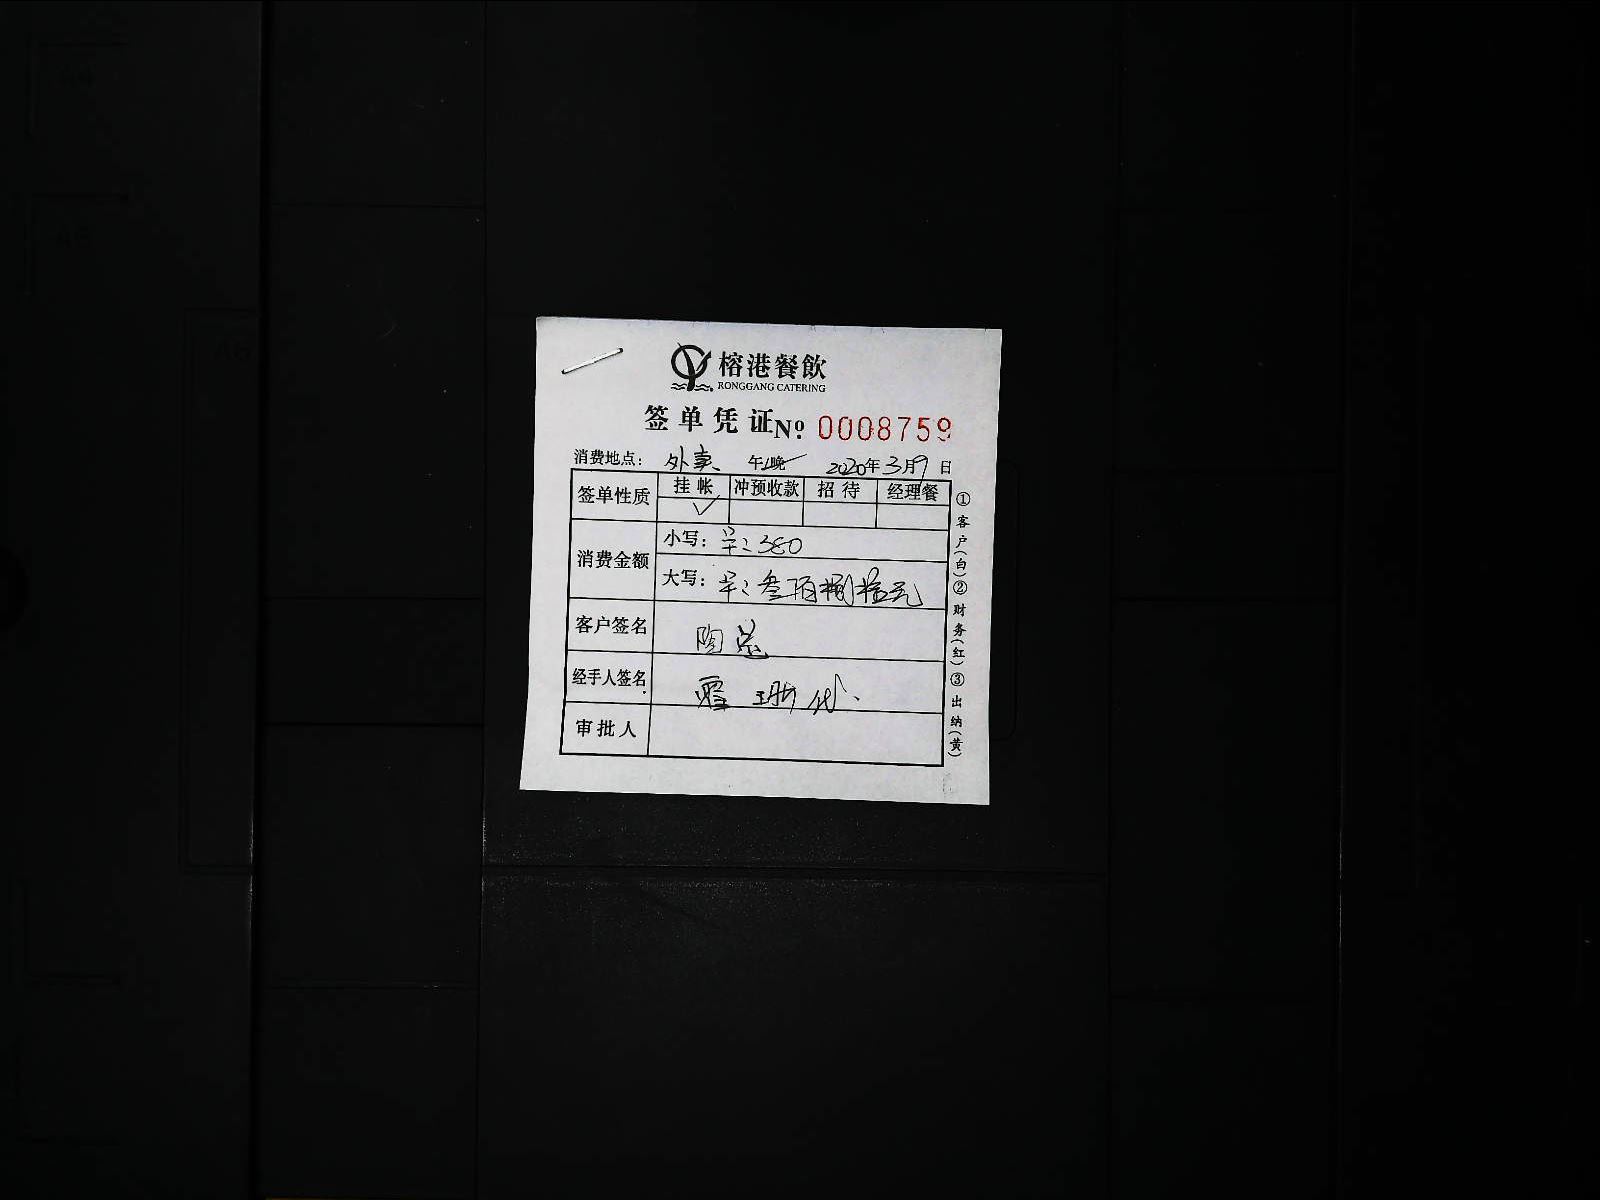 榕港餐飲
RONGGANG CATERING
签单凭证№ 0008759
消费地点：外卖 午/晚 2020年3月9日
签单性质 挂帐 冲预收款 招待 经理餐
✓
消费金额
小写：半:380
大写：半:叁佰捌拾元
客户签名 陶总
经手人签名
审批人
①客户(白)②财务(红)③出纳(黄)
A6